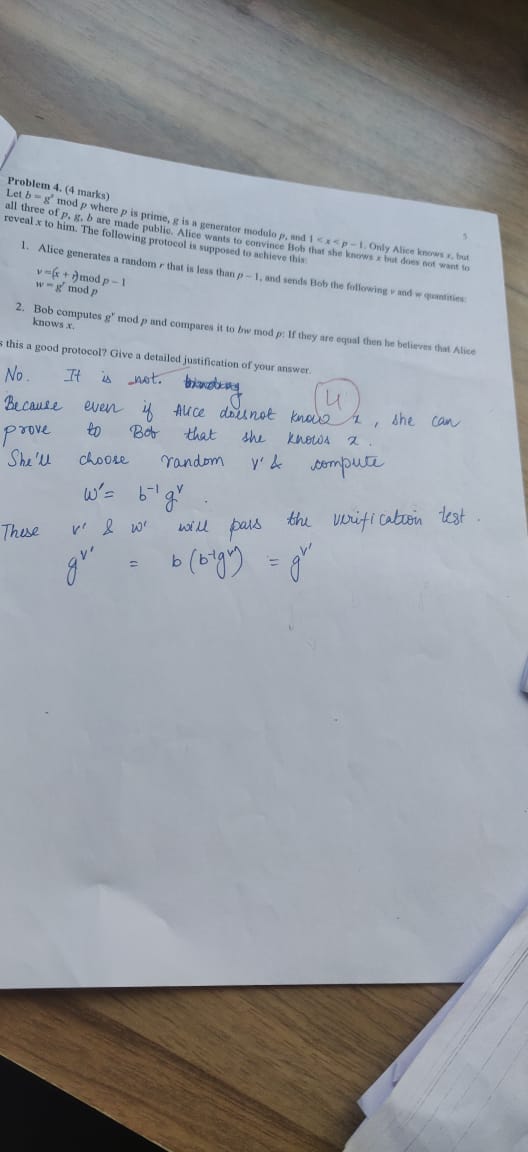 Problem 4. (4 marks)
5
Let b = gˣ mod p where p is prime, g is a generator modulo p, and 1 < x < p – 1. Only Alice knows x, but
all three of p, g, b are made public. Alice wants to convince Bob that she knows x but does not want to
reveal x to him. The following protocol is supposed to achieve this:
1. Alice generates a random r that is less than p – 1, and sends Bob the following v and w quantities:
v = (x + r) mod p – 1
w = gʳ mod p
2. Bob computes gᵛ mod p and compares it to bw mod p: If they are equal then he believes that Alice
knows x.
s this a good protocol? Give a detailed justification of your answer.
No. It is not.
4
Because even if Alice doesnot know x, she can
prove to Bob that she knows x.
She'll choose random v' & compute
w' = b⁻¹ gᵛ .
These v' & w' will pass the verification test.
gᵛ' = b (b⁻¹gᵛ') = gᵛ'